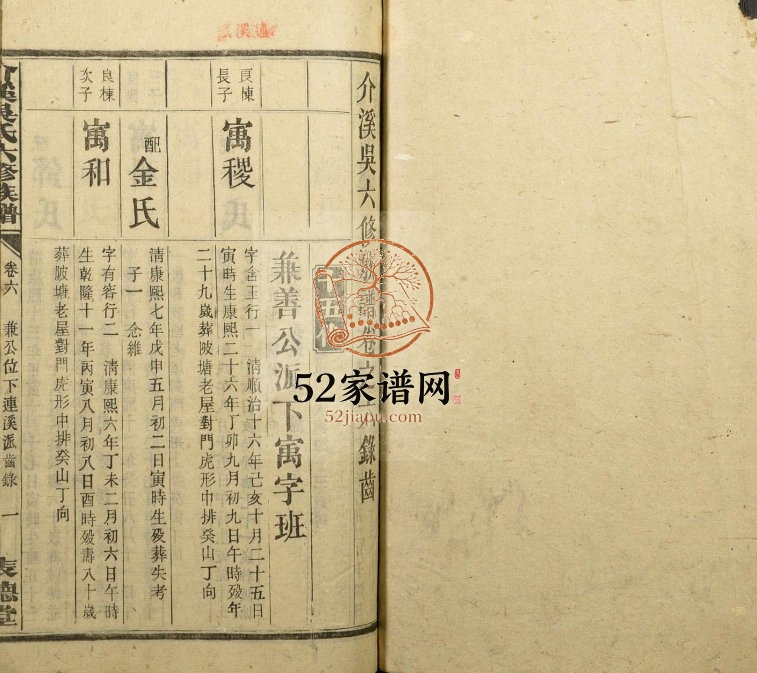 介溪吳六修族譜卷之六錄齒
兼善公派下寓字班
良棟長子
寓稷
字含王行一 清順治十六年己亥十月二十五日
寅時生康熙二十六年丁卯九月初九日午時歿年
二十九歲葬陂塘老屋對門虎形中排癸山丁向
配金氏
清康熙七年戊申五月初二日寅時生歿葬失考
子一 念維
良棟次子
寓和
字有容行二 清康熙六年丁未二月初六日午時
生乾隆十一年丙寅八月初八日酉時歿壽八十歲
葬陂塘老屋對門虎形中排癸山丁向
介溪吳氏六修族譜
卷六 兼公位下連溪派齒錄 一
表德堂
連溪
52家谱网
52jiapu.com